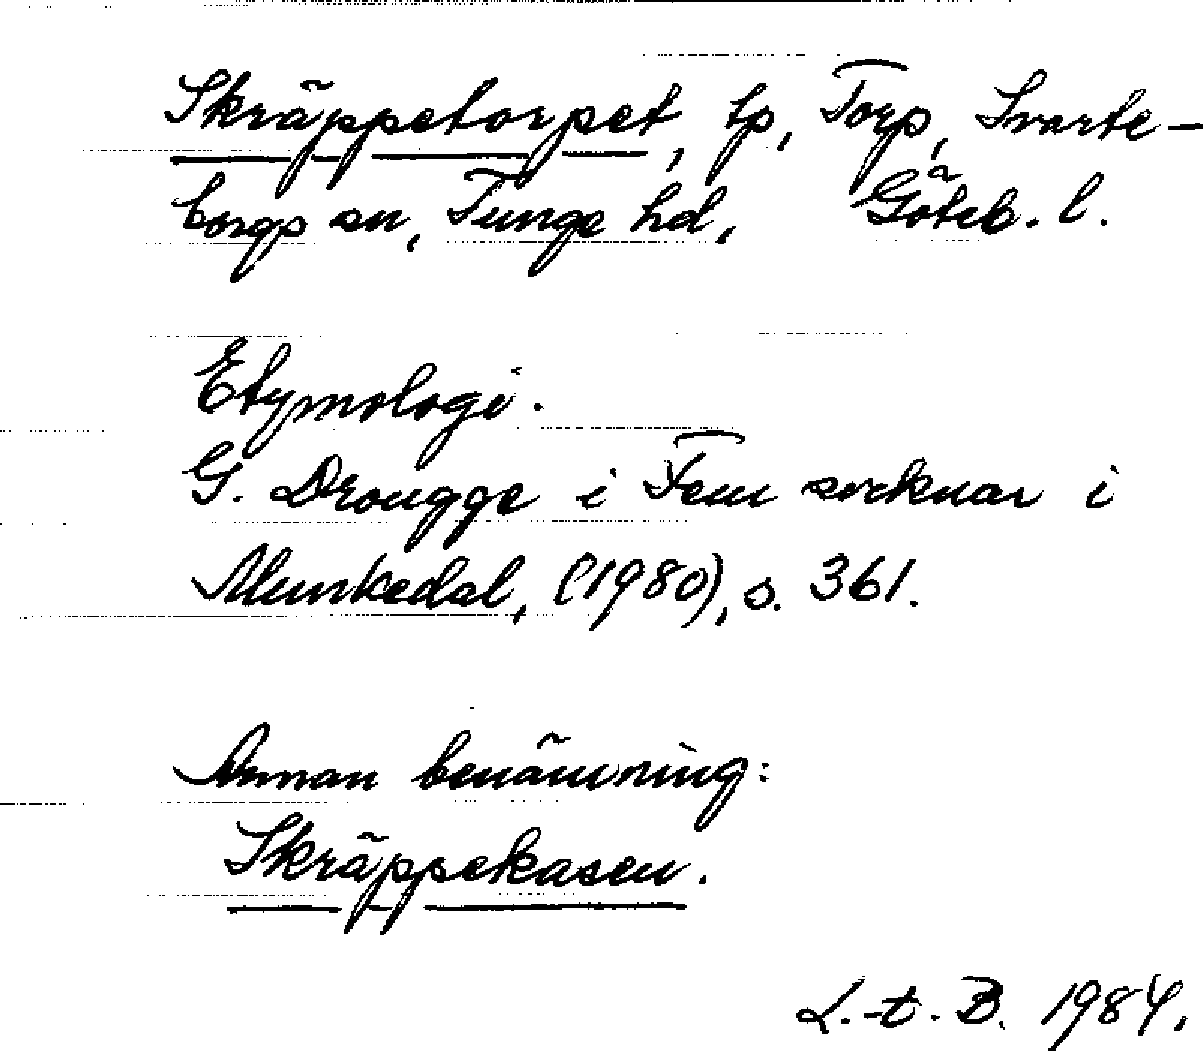 Skräppetorpet, tp, Torp, Svarte-
borgs sn, Tunge hd, Göteb. l.
Etymologi.
G. Drougge i Fem socknar i
Munkedal, (1980), s. 361.
Annan benämning:
Skräppekasen.
L.-t. B. 1984.